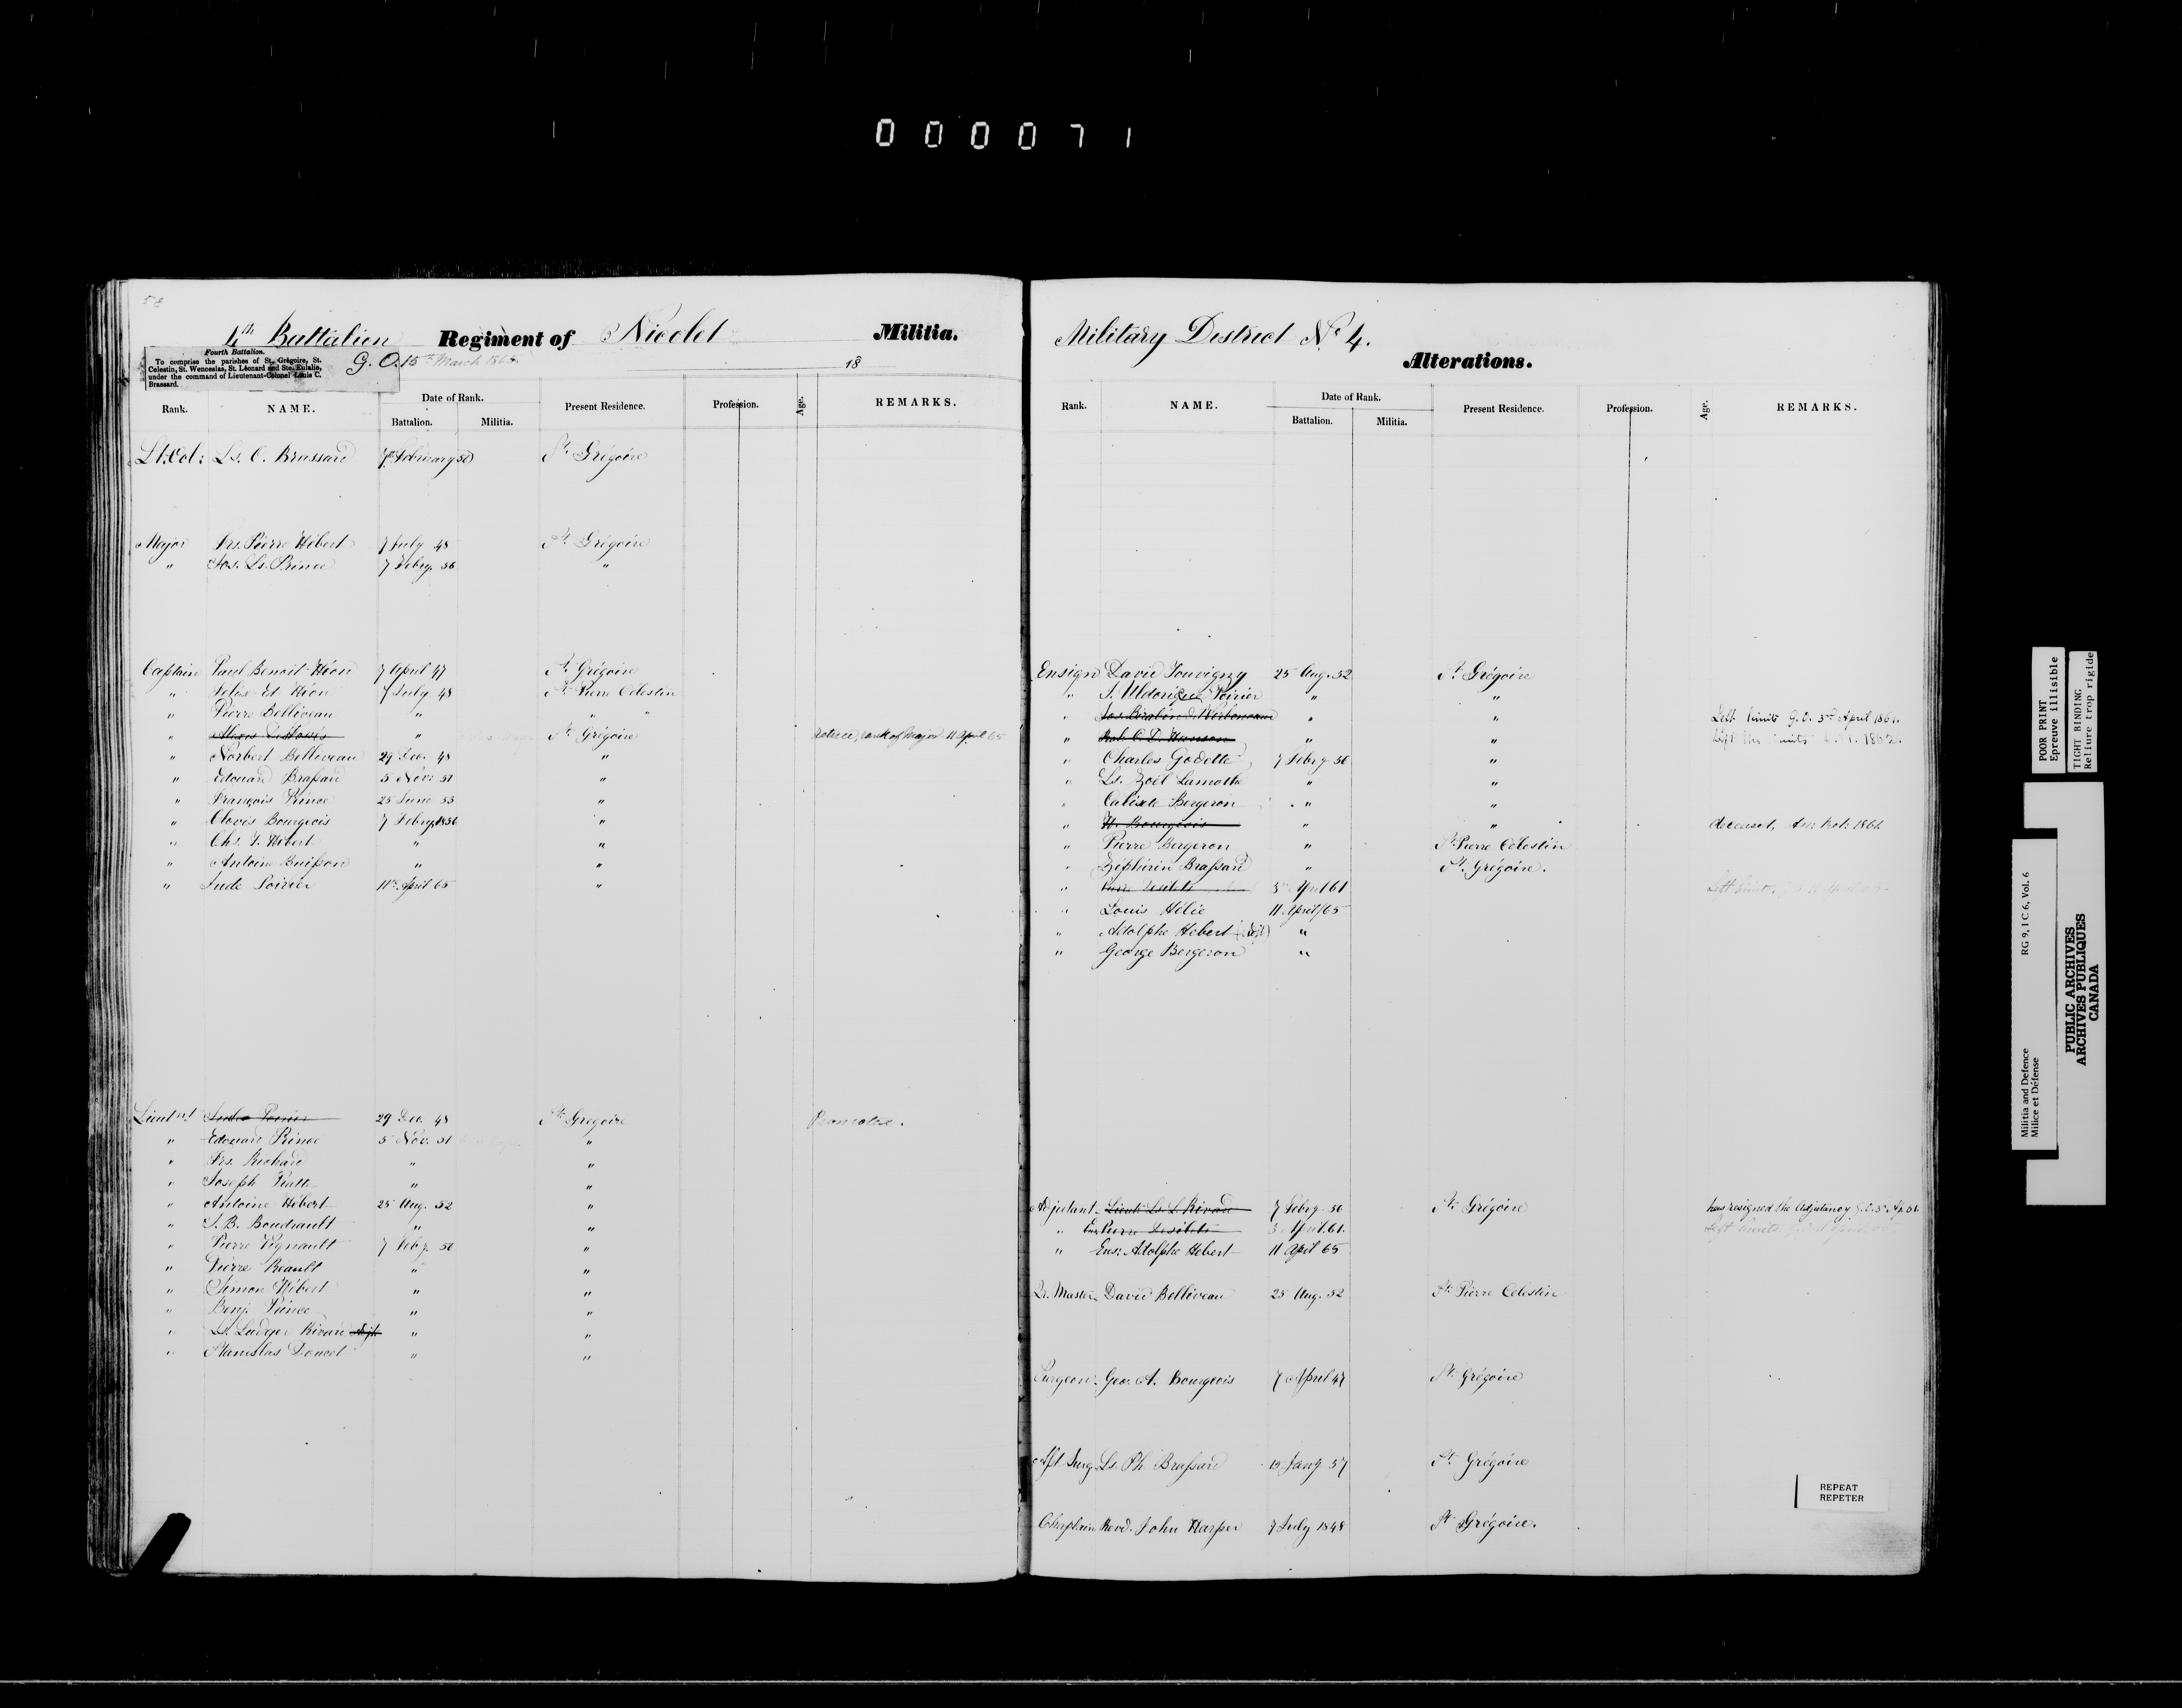 000071
58
4th Battalion Regiment of Nicolet Militia.
Fourth Battalion.
To comprise the parishes of St. Grégoire, St.
Celestin, St. Wenceslas, St. Léonard and Ste. Eulalie,
under the command of Lieutenant-Colonel Louis C.
Brassard.
G. O. 15th March 1865
18
Rank. NAME. Date of Rank. Battalion. Militia. Present Residence. Profession. Age. REMARKS.
Lt. Col: Ls. C. Brassard 7th February 56 St. Grégoire
Major Frs. Pierre Hébert 7 July 48 St. Grégoire
" Jos. Ls. Prince 7 Feby. 56 "
Captain Paul Benoit Héon 7 April 47 St. Grégoire
" Félix Ed. Héon 7 July 48 St. Pierre Celestin
" Pierre Belliveau " " "
" " St. Grégoire retires, rank of Major 11 April 65
" Norbert Belliveau 29 Dec. 48 "
" Edouard Brassard 5 Nov: 51 "
" François Prince 25 June 53 "
" Clovis Bourgeois 7 Feby. 1856 "
" Chs. I. Hébert " "
" Antoine Buisson " "
" Jude Poirier 11th April 65 "
Lieutnt Jude Poirier 29 Dec. 48 St. Grégoire Promoted.
" Edouard Prince 5 Nov. 51 "
" Frs. Richard " "
" Joseph Pratte " "
" Antoine Hébert 25 Aug. 52 "
" J. B. Boudreault " "
" Pierre Vignault 7 Feby. 56 "
" Pierre Reault " "
" Simon Hébert " "
" Benj. Prince " "
" Ls. Ludger Rivard Adjt. " "
" Stanislas Doucet " "
Military District No. 4.
Alterations.
Rank. NAME. Date of Rank. Battalion. Militia. Present Residence. Profession. Age. REMARKS.
Ensign David Jouvigny 25 Aug. 52 St. Grégoire
" Poirier " "
" " " Left limits G.O. 3rd April 1861.
" C. D. Hanson " " Left the limits 1862.
" Charles Godette 7 Feby. 56 "
" Ls. Zoël Lamothe " "
" Calixte Bergeron " "
" H. Bourgeois " " deceased, 1861.
" Pierre Bergeron " St. Pierre Célestin
" Zéphirin Brassard " St. Grégoire.
" Pierre Desilets 3rd April 61 Left limits
" Louis Hélie 11 April/65
" Adolphe Hébert (Adjt) "
" George Bergeron "
Adjutant. Lieut. Ls. L. Rivard 7 Feby. 56 St. Grégoire has resigned the Adjutancy G.O. 3d Ap. 61
" Ens. Pierre Desilets 3 April 61. Left limits
" Ens: Adolphe Hébert 11 April 65
Qr. Master David Belliveau 25 Aug. 52 St. Pierre Celestin
Surgeon. Geo. A. Bourgeois 7 April 47 St. Grégoire
Asst. Surg. Ls. Ph. Brassard 15 Jany 57 St. Grégoire
Chaplain Revd. John Harper 7 July 1848 St. Grégoire.
REPEAT
REPETER
POOR PRINT
Epreuve illisible
TIGHT BINDING
Reliure trop rigide
Militia and Defence RG 9, I C 6, Vol. 6
Milice et Défense
PUBLIC ARCHIVES
ARCHIVES PUBLIQUES
CANADA